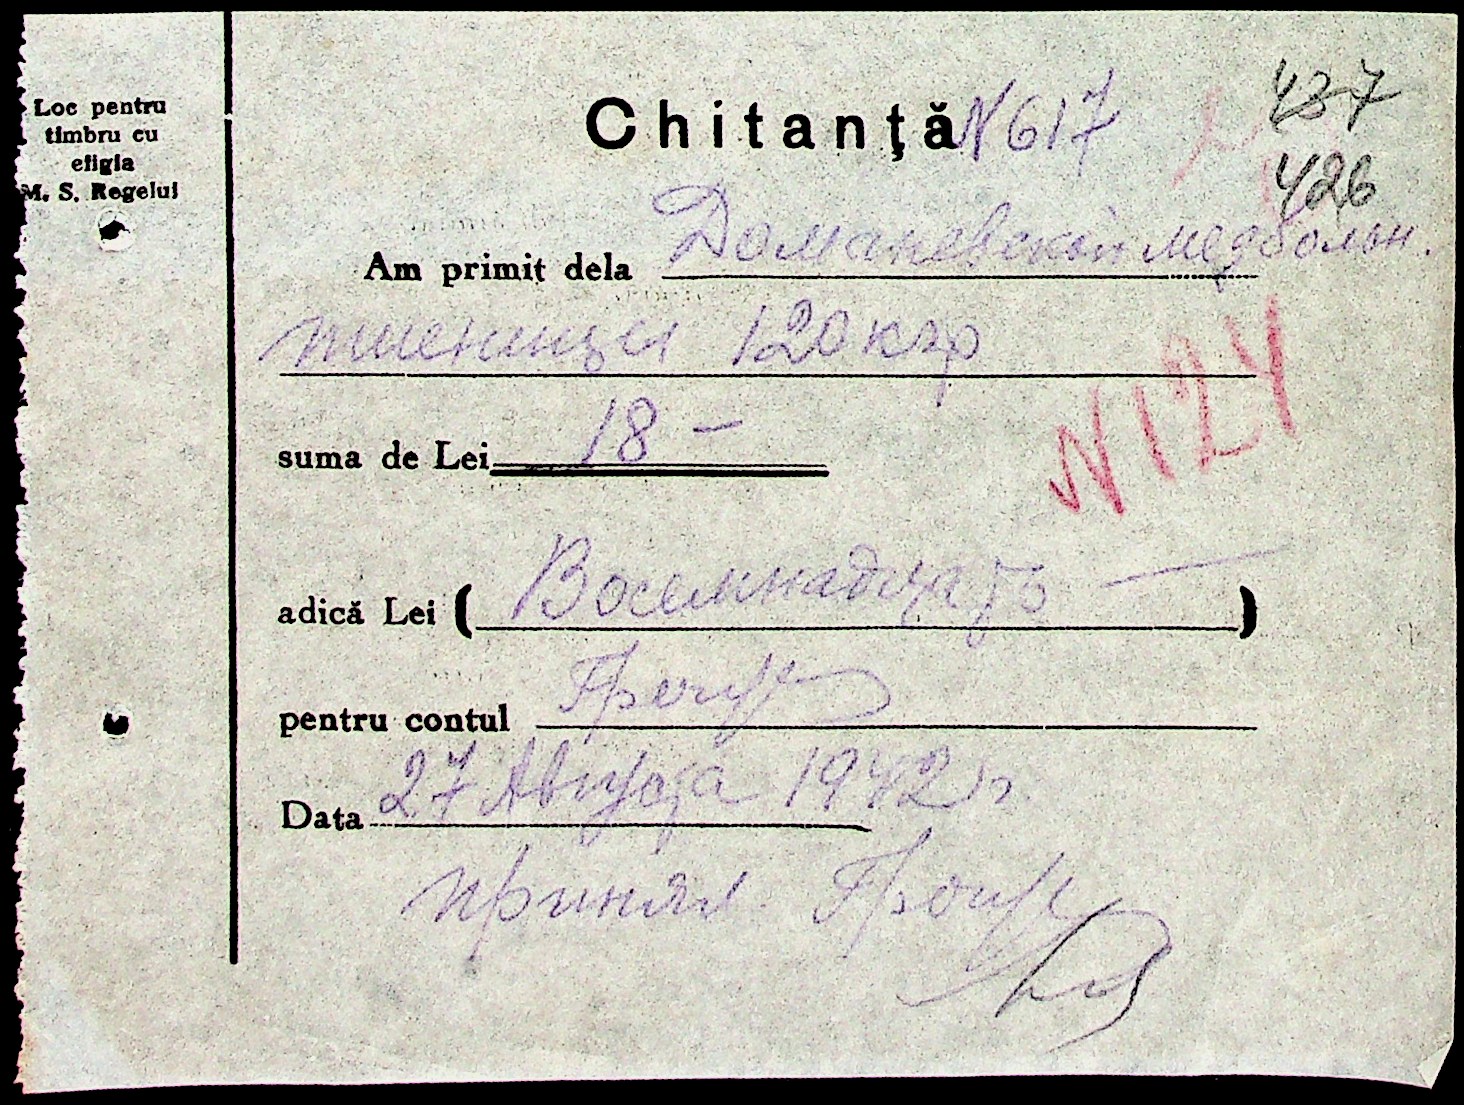 Loc pentru
timbru cu
efigia
M. S. Regelui
Chitanță N 617
437
426
Am primit dela Доманевской медболн.
пшеницы 120 кгр
N 124
suma de Lei 18 –
adică Lei ( Восемнадцать — )
pentru contul
Data 27 Августа 1942 г
принял